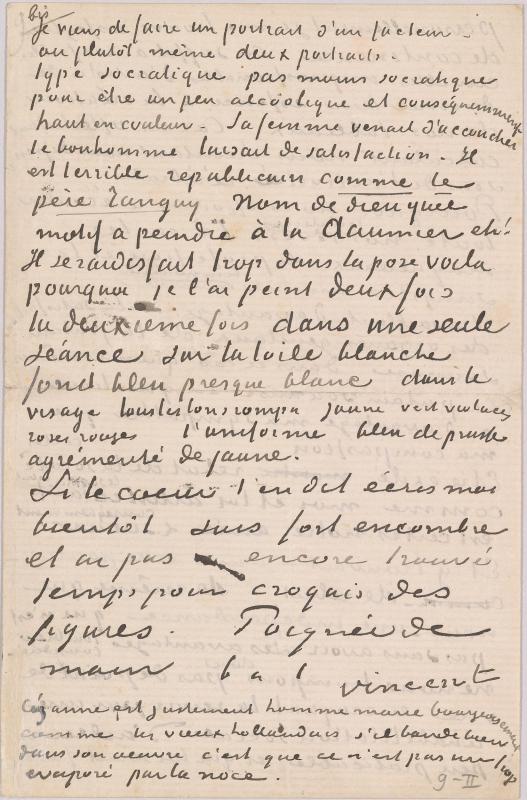 bis
Je viens de faire un portrait d'un facteur.
ou plutôt même deux portraits.
type socratique pas moins socratique
pour être un peu alcoolique et conséquemment
haut en couleur. Sa femme venait d'accoucher
le bonhomme luisait de satisfaction. Il
est terrible republicain comme le
père Tanguy Nom de dieu quel
motif a peindre à la Daumier eh!
Il se raidissait trop dans la pose voila
pourquoi je l'ai peint deux fois
la deuxieme fois dans une seule
séance sur la toile blanche
fond bleu presque blanc dans le
visage tous les tons rompu jaune vert violaces
roses rouges l'uniforme bleu de prusse
agrémenté de jaune.
Si le coeur t'en dit écris moi
bientôt suis fort encombré
et ai pas encore trouvé
temps pour croquis des
figures. Poignée de
main b a t Vincent
Cézanne est justement homme marié bourgeoisement
comme les vieux hollandais s'il bande bien
dans son oeuvre c'est que ce n'est pas un trop
evaporé par la noce.
9-II